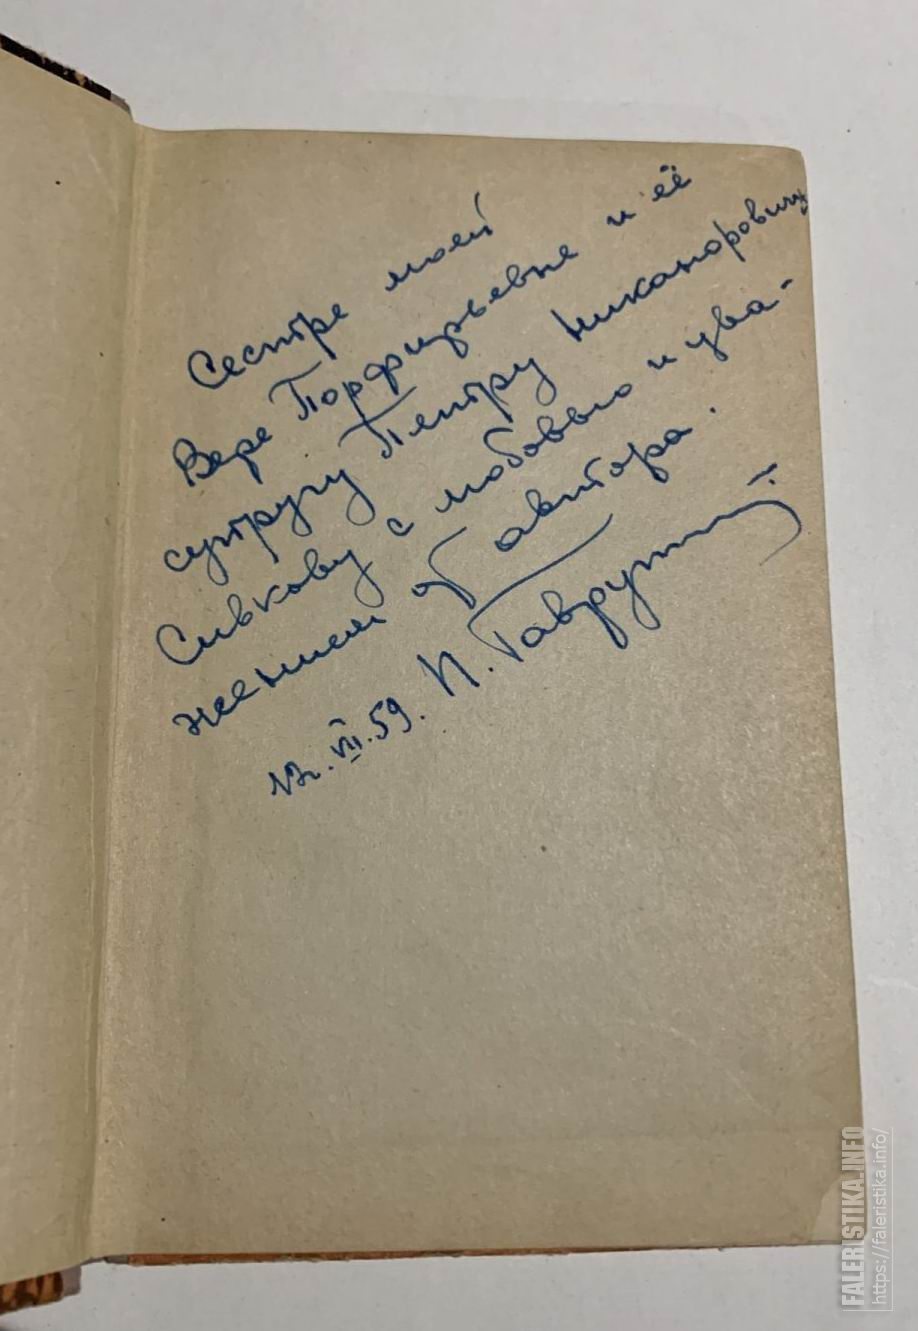 Сестре моей
Вере Порфирьевне и её
супругу Петру Никаноровичу
Сивкову с любовью и ува-
жением от автора.
П. Гаврутий
VIII.59.
FALERISTIKA.INFO
https://faleristika.info/